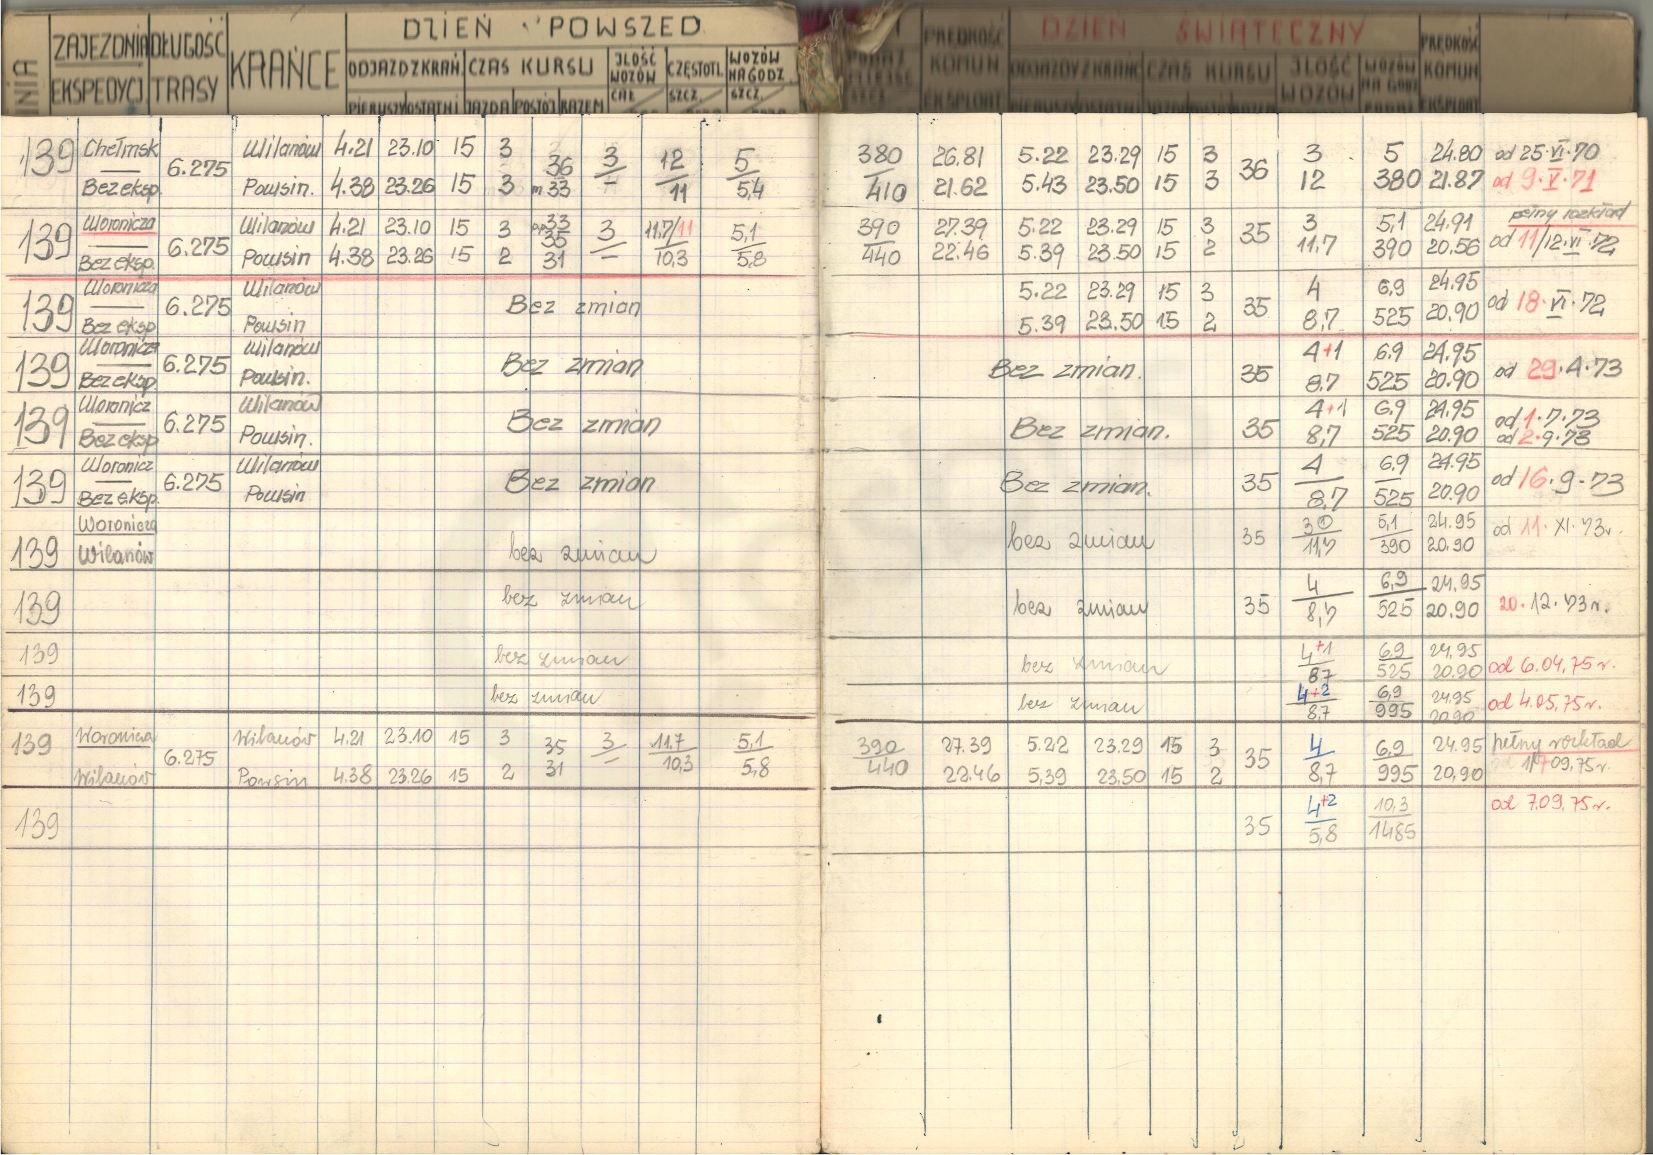 ZAJEZDNIA DŁUGOŚĆ KRAŃCE DZIEŃ POWSZED
EKSPEDYCJ. TRASY ODJAZD Z KRAŃ. CZAS KURSU JLOŚĆ WOZÓW CAŁ CZĘSTOTL. SZCZ. WOZÓW NA GODZ. SZCZ.
PIERWSZY OSTATNI JAZDA POSTÓJ RAZEM
PRĘDKOŚĆ KOMUN EKSPLOAT DZIEŃ ŚWIĄTECZNY PRĘDKOŚĆ KOMUN EKSPLOAT
ODJAZDY Z KRAŃC CZAS KURSU JLOŚĆ WOZÓW WOZÓW NA GODZ
139 Chełmsk 6.275 Wilanów 4.21 23.10 15 3 36 3 12 5 380 26.81 5.22 23.29 15 3 36 3 5 24.80 od 25.VI.70
Bez eksp. Powsin. 4.38 23.26 15 3 m 33 – 11 5,4 410 21.62 5.43 23.50 15 3 12 380 21.87 od 9.V.71
139 Woronicza 6.275 Wilanów 4.21 23.10 15 3 33 35 3 11.7/11 5,1 390 27.39 5.22 23.29 15 3 35 3 5,1 24.91 pełny rozkład
Bez eksp. Powsin 4.38 23.26 15 2 31 – 10,3 5,8 440 22.46 5.39 23.50 15 2 11,7 390 20.56 od 11/12.VI.72
139 Woronicza 6.275 Wilanów Bez zmian 5.22 23.29 15 3 35 4 6,9 24.95 od 18.VI.72
Bez eksp. Powsin 5.39 23.50 15 2 8,7 525 20,90
139 Woronicza 6.275 Wilanów Bez zmian Bez zmian. 35 4+1 6.9 24.95 od 29.4.73
Bez eksp. Powsin. 8.7 525 20.90
139 Woronicz 6.275 Wilanów Bez zmian Bez zmian. 35 4+1 6.9 24.95 od 1.7.73
Bez eksp. Powsin. 8,7 525 20.90 od 2.9.73
139 Woronicz 6.275 Wilanów Bez zmian Bez zmian. 35 4 6.9 24.95 od 16.9.73
Bez eksp. Powsin 8,7 525 20.90
139 Woronicza bez zmian bez zmian 35 5,1 24.95 od 11.XI.73r.
Wilanów 11,7 390 20.90
139 bez zmian bez zmian 35 4 6,9 24.95 20.12.73r.
8,7 525 20.90
139 bez zmian bez zmian 4+1 6.9 24.95 od 6.04.75r.
87 525 20.90
139 bez zmian bez zmian 4+2 6,9 24.95 od 4.05,75r.
8,7 995 20.90
139 Woronicza 6.275 Wilanów 4.21 23.10 15 3 35 3 11.7 5,1 390 27.39 5.22 23.29 15 3 35 4 6,9 24.95 pełny rozkład
Wilanów Powsin 4.38 23.26 15 2 31 – 10,3 5,8 440 22.46 5,39 23,50 15 2 8,7 995 20,90 09,75r.
139 35 4+2 10,3 od 7.09.75r.
5,8 1485